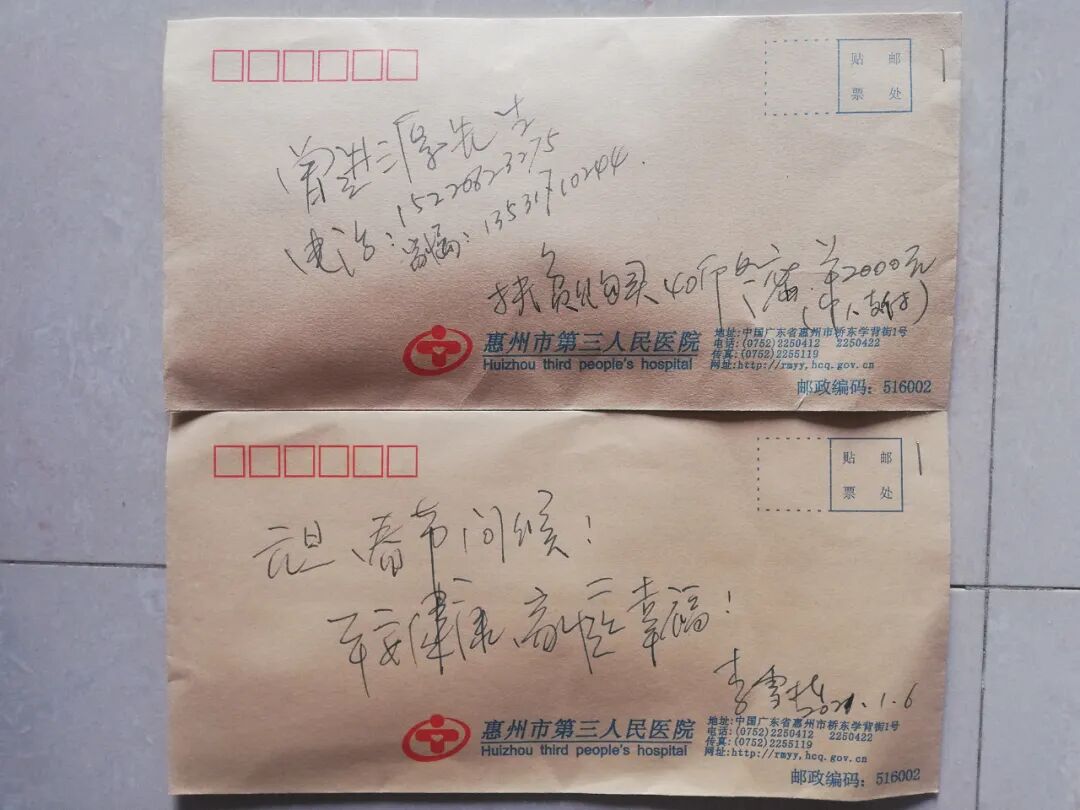 贴 邮
票 处
曾 先生
电话：15220823275
13531710244.
扶贫购买40 2000元
（个人支付）
惠州市第三人民医院
Huizhou third people's hospital
地址:中国广东省惠州市桥东学背街1号
电话:(0752)2250412 2250422
传真:(0752)2255119
网址:http://rmyy.hcq.gov.cn
邮政编码：516002
贴 邮
票 处
元旦 春节问候！
平安健康 幸福！
李雪
2021.1.6
惠州市第三人民医院
Huizhou third people's hospital
地址:中国广东省惠州市桥东学背街1号
电话:(0752)2250412 2250422
传真:(0752)2255119
网址:http://rmyy.hcq.gov.cn
邮政编码：516002